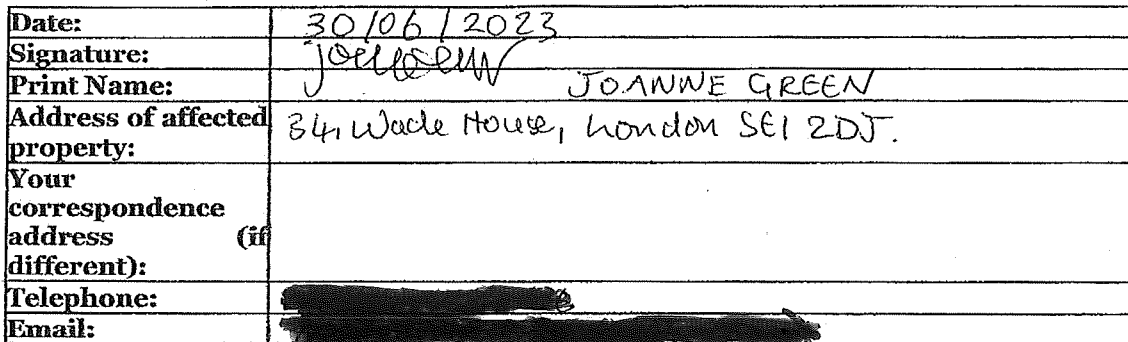 Date: 30/06/2023
Signature:
Print Name: JOANNE GREEN
Address of affected 34, Wade House, London SE1 2DJ.
property:
Your
correspondence
address (if
different):
Telephone:
Email: